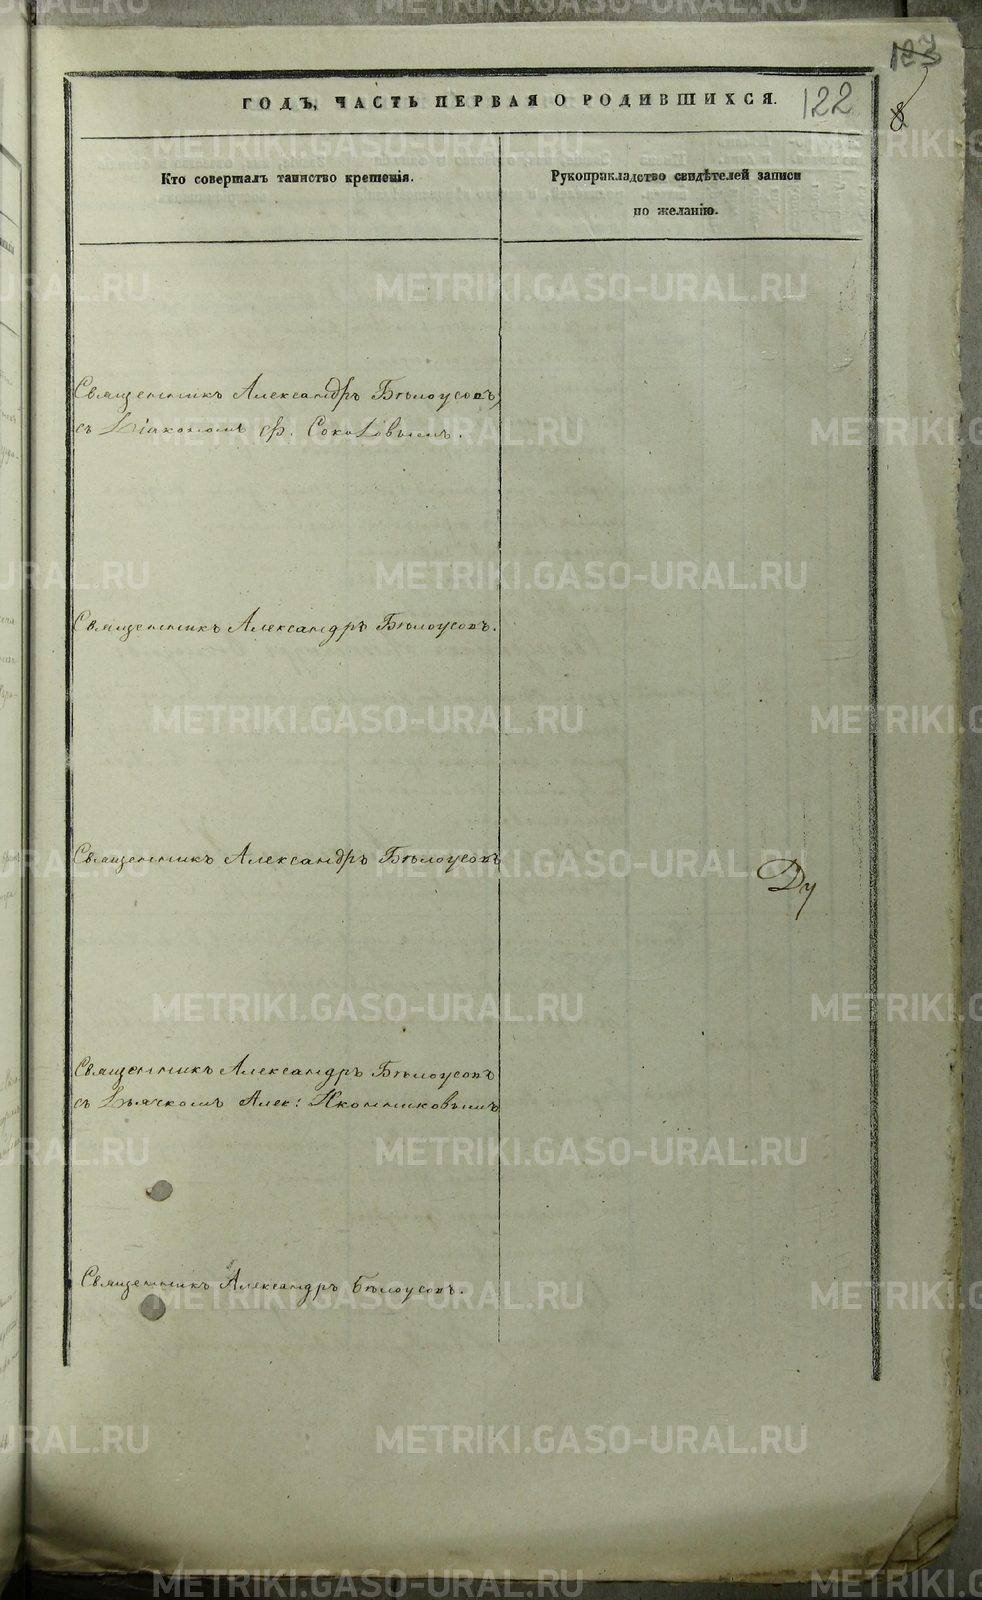 ГОДЪ, ЧАСТЬ ПЕРВАЯ О РОДИВШИХСЯ.
122
Кто совершалъ таинство крещенія.
Рукоприкладство свидѣтелей записи
по желанію.
Священникъ Александръ Бѣлоусовъ
съ Діакономъ Ф. Соколовымъ.
Священникъ Александръ Бѣлоусовъ.
Священникъ Александръ Бѣлоусовъ
Ду
Священникъ Александръ Бѣлоусовъ
съ Дьячкомъ Алек: Иконниковымъ
Священникъ Александръ Бѣлоусовъ.
METRIKI.GASO-URAL.RU